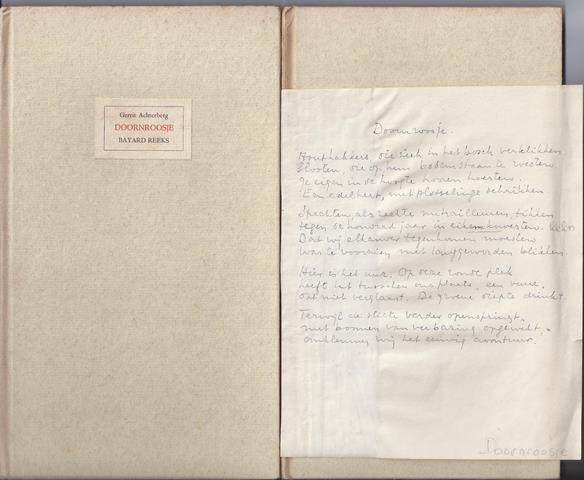 Gerrit Achterberg
DOORNROOSJE
BAYARD REEKS
Doornroosje.
Houthakkers, die zich in het bosch verklikken.
Sloten, die op hun bodem staan te roesten.
Je eigen in de hoogte hooren hoesten.
Een edelhert, met plotselinge schrikken
Spechten, als zachte mitrailleurs, tikken
tegen de honderd jaar in
Dat wij elkander tegenkomen moesten
was te voorzien met langgeworden blikken.
Hier is het uur. Op deze ronde plek
heeft het tusschen ons plaats, een vuur,
dat niet verglaast. De groene diepte drinkt.
Terwijl de stilte verder openspringt,
met boomen van verbazing opgewekt,
omklemmen wij het eeuwig avontuur.
Doornroosje